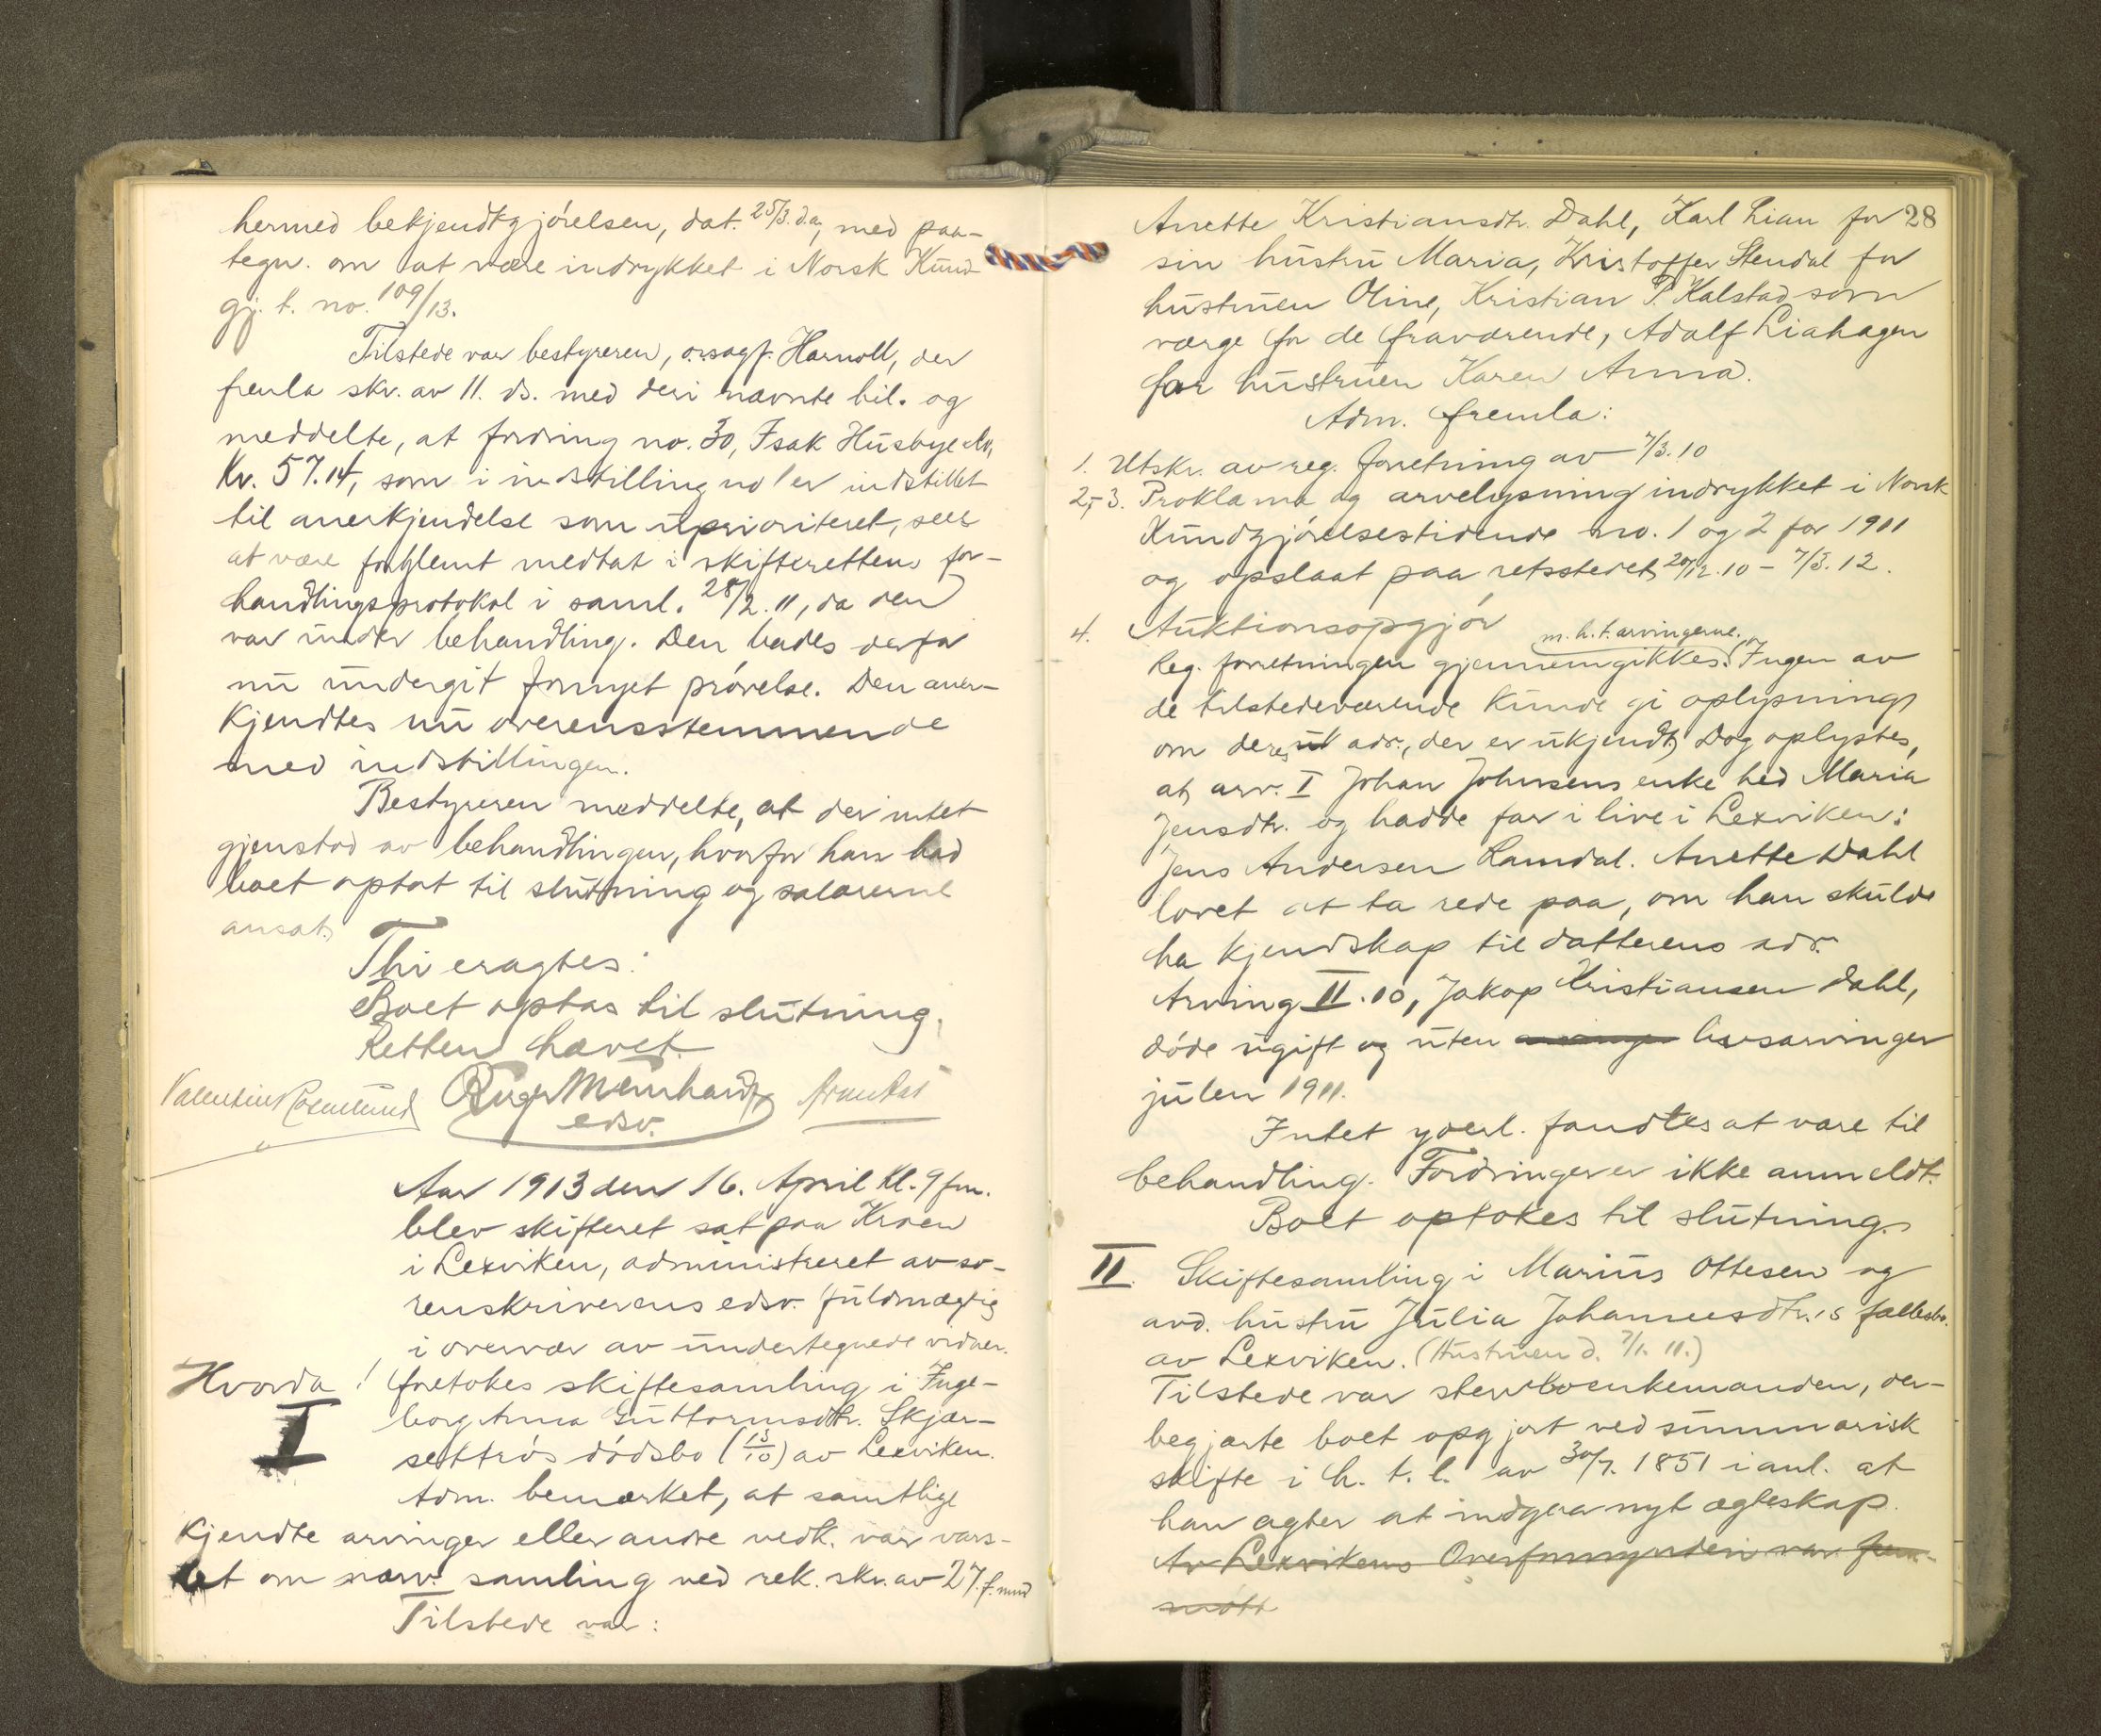 hermed bekjendtgjørelsen, dat. 25/3. d.a., med paa-
tegn. om at være indrykket i Norsk Kund-
gj. t. no. 109/13.
Tilstede var bestyreren, o.r.sagf. Harnoll, der
fremla skr. av 11. ds. med deri nævnte bil. og
meddelte, at fordring no. 30, Isak Husbye
Kr. 57.14, som i indstilling no 1 er indstillet
til anerkjendelse som uprioriteret, sees
at være forglemt medtat i skifterettens for-
handlingsprotokol i saml. 28/2. 11, da den
var under behandling. Den bades derfor
nu undergit fornyet prøvelse. Den aner-
kjendtes nu overensstemmende
med indstillingen.
Bestyreren meddelte, at der intet
gjenstod av behandlingen, hvorfor han bad
boet optat til slutning og salærerne
ansat.
Thi eragtes:
Boet optas til slutning.
Retten hævet.
Valentin Meinhardt
edsv.
Aar 1913 den 16. April kl. 9 fm.
blev skifteret sat paa Kroen
i Lexviken, administreret av so-
renskriverens edsv. fuldmægtig
i overvær av undertegnede vidner.
Hvorda! foretokes skiftesamling i Inge-
I borg Anna Guttormsdtr. Skjær-
settrøs dødsbo (15/10) av Lexviken.
Adm. bemerket, at samtlige
kjendte arvinger eller andre vedk. var vars-
let om nærv. samling ved rek. skr. av 27. f. mnd
Tilstede var:
28
Anette Kristiansdtr. Dahl, Karl Lian for
sin hustru Maria, Kristoffer Stendal for
hustruen Oline, Kristian P. Kalstad som
værge for de fraværende, Adolf Liahagen
for hustruen Karen Anna.
Adm. fremla:
1. Utskr. av reg. forretning av 7/3. 10
2,-3. Proklama og arvelysning indrykket i Norsk
Kundgjørelsestidende no. 1 og 2 for 1911
og opslaat paa retsstedet 20/12. 10 - 7/3. 12.
4. Auktionsopgjør
m. h. t. arvingerne.
Reg. forretningen gjennemgikkes. Ingen av
de tilstedeværende kunde gi oplysning
om deres adr., der er ukjendt. Dog oplystes,
at arv. I Johan Johnsens enke hed Maria
Jensdtr. og hadde far i live i Lexviken:
Jens Andersen Ramdal. Anette Dahl
lovet at ta rede paa, om han skulde
ha kjendskap til datterens adr.
Arving II. 10, Jakop Kristiansen Dahl,
døde ugift og uten livsarvinger
julen 1911.
Intet yderl. fandtes at være til
behandling. Fordringer er ikke anmeldt.
Boet optokes til slutning.
II. Skiftesamling i Marius Ottesen og
avd. hustru Julia Johannesdtr.'s fællesbo.
av Lexviken. (Hustruen d. 7/1. 11.)
Tilstede var stervboenkemanden, der
begjærte boet opgjort ved summarisk
skifte i h. t. l. av 30/7. 1851 i anl. at
han agter at indgaa nyt ægteskap.
Av Lexvikens Overformynderi var frem-